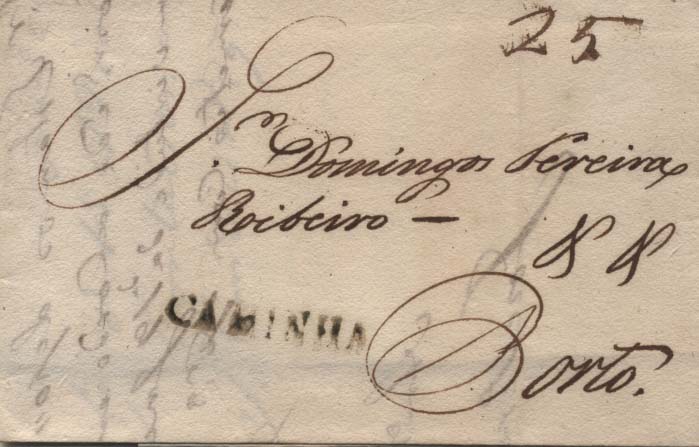 25
Sn. Domingos Pereira
Ribeiro —
& &
CAMINHA
Porto.